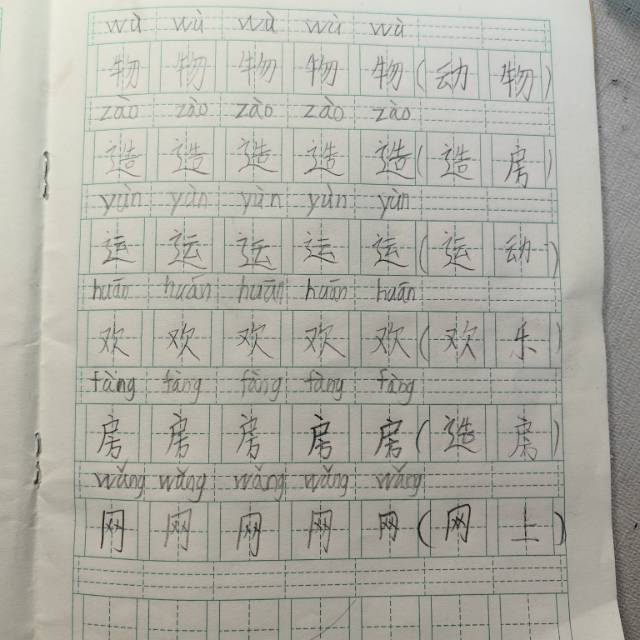 wù wù wù wù wù
物 物 物 物 物 ( 动 物 )
zào zào zào zào zào
造 造 造 造 造 ( 造 房 )
yùn yùn yùn yùn yùn
运 运 运 运 运 ( 运 动 )
huān huān huān huān huān
欢 欢 欢 欢 欢 ( 欢 乐 )
fàng fàng fàng fàng fàng
房 房 房 房 房 ( 造 房 )
wǎng wǎng wǎng wǎng wǎng
网 网 网 网 网 ( 网 上 )